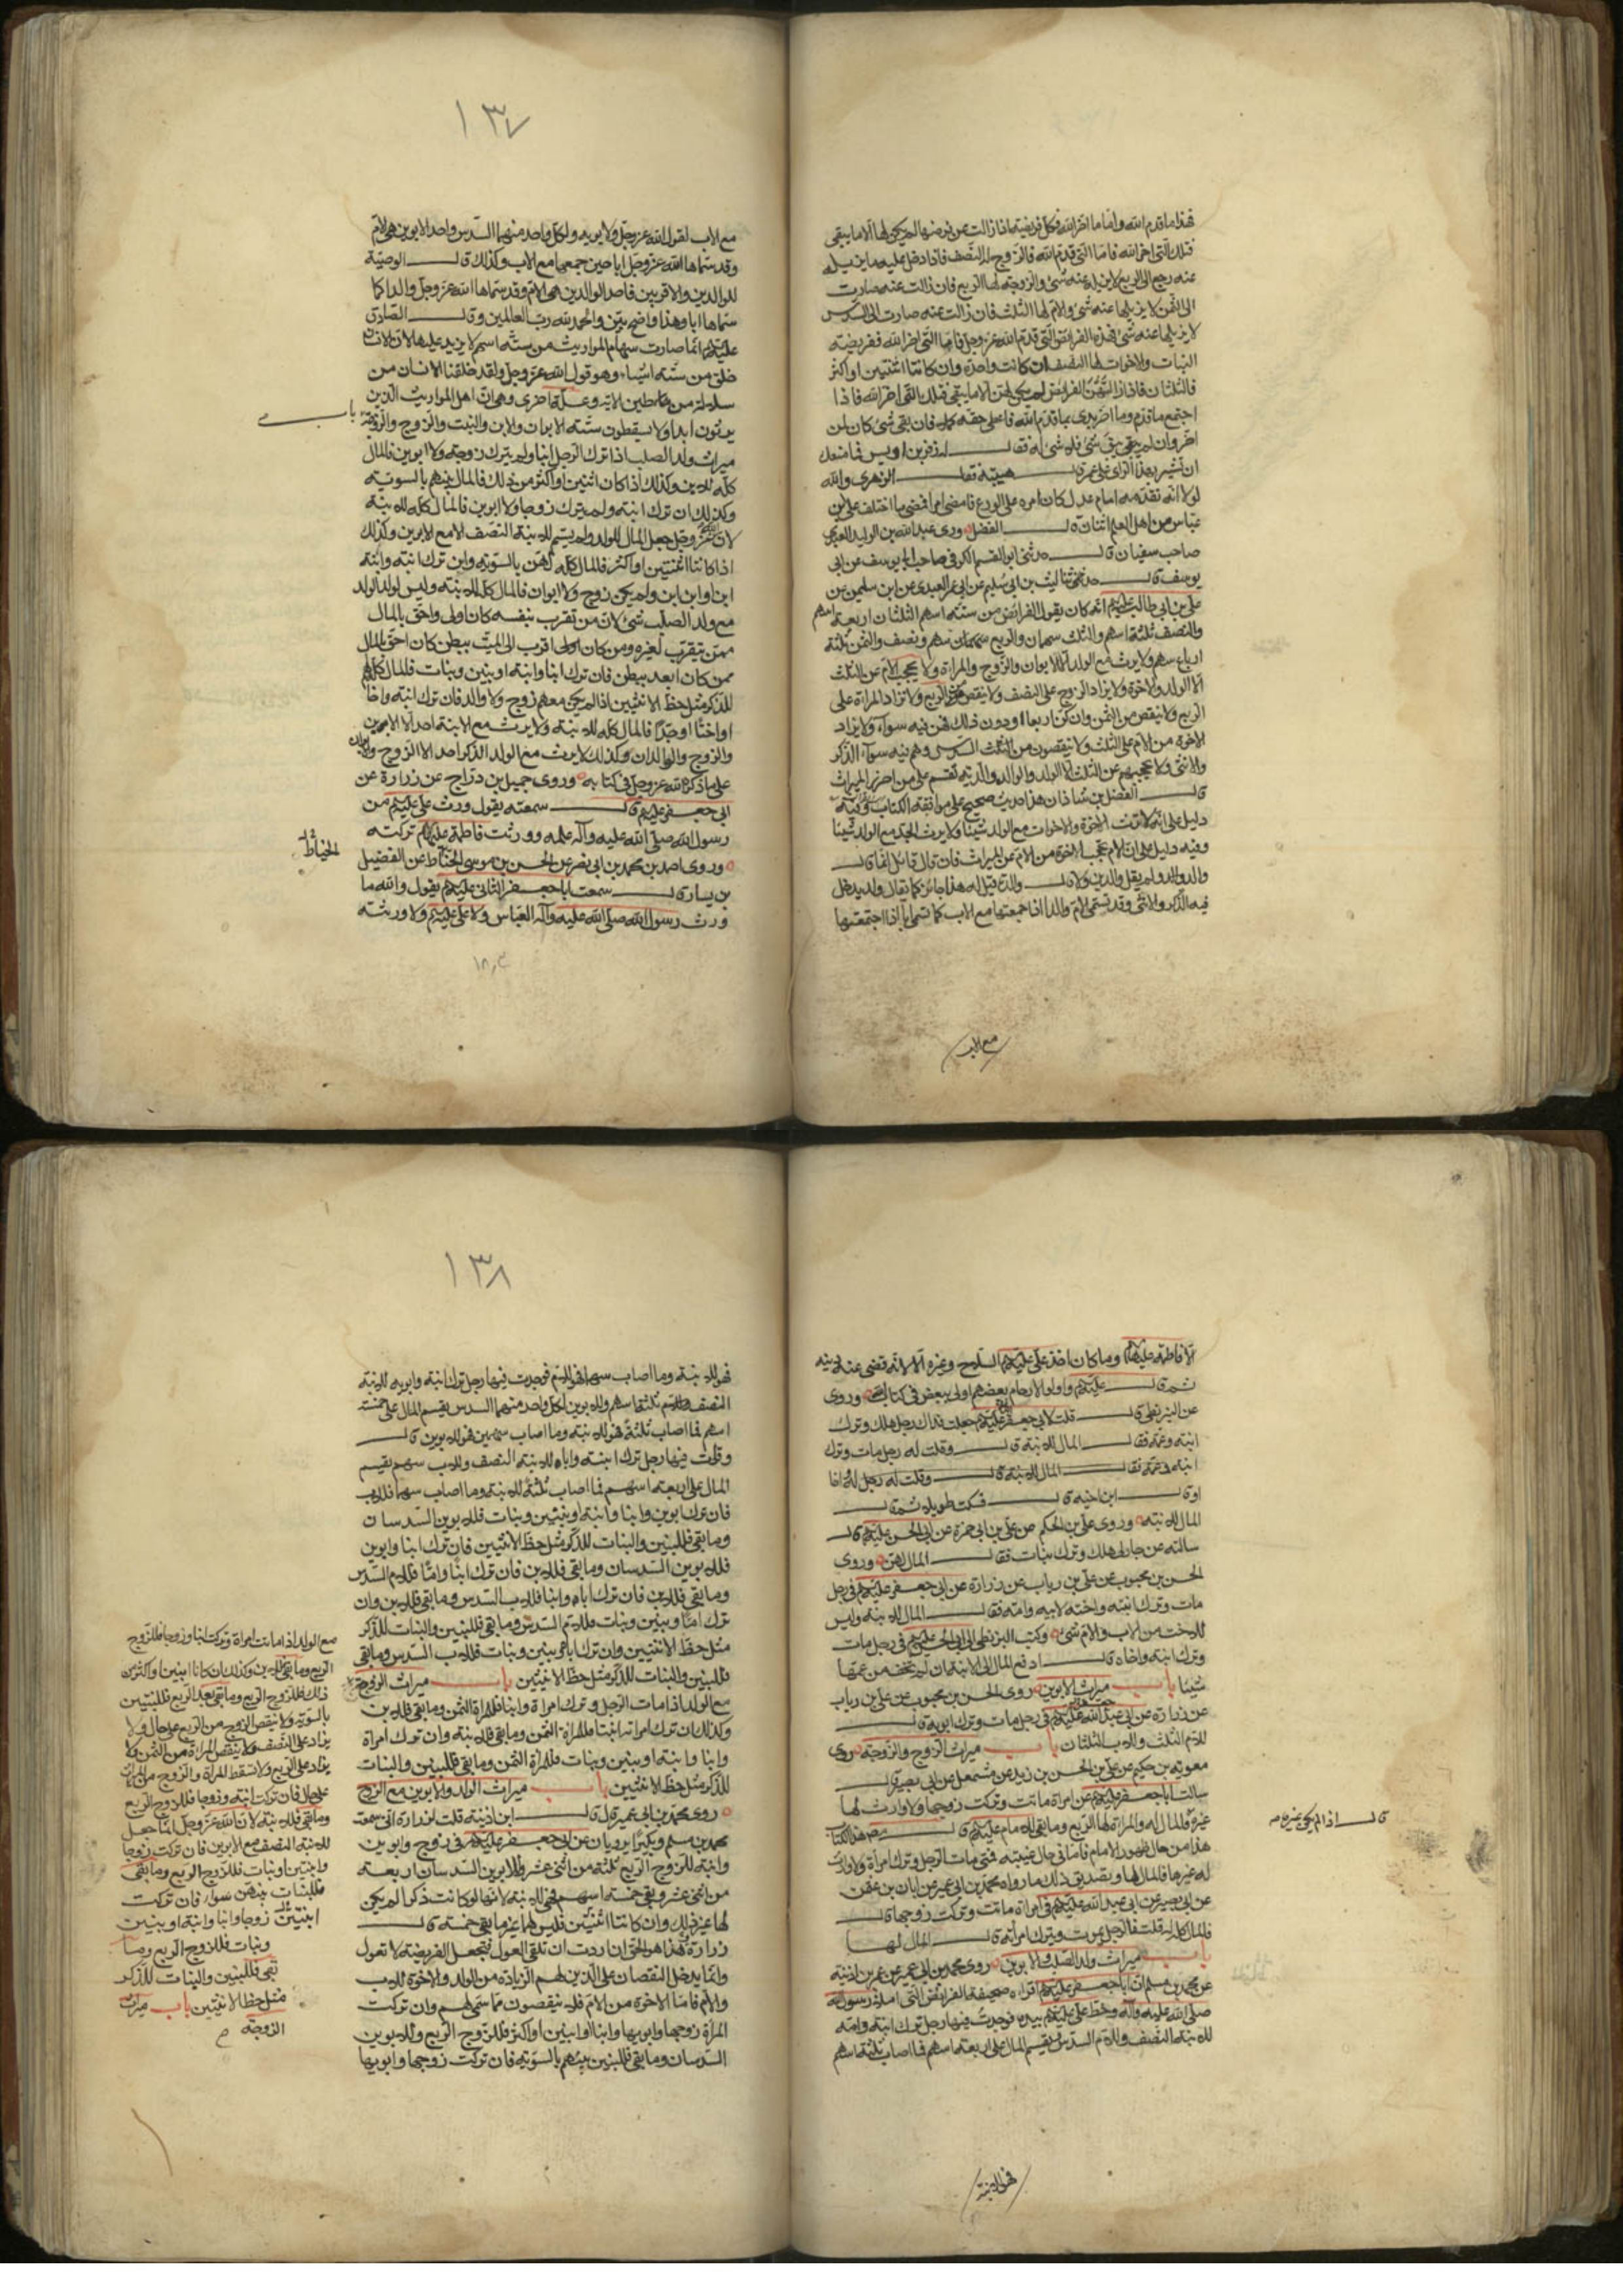 فهذا ما قدم الله واما ما اخر الله فكل فريضة اذا زالت عن فرضها لم يكن لها الا ما يبقى
فتلك التي اخر الله فاما التي قدم الله فالزوج له النصف فاذا دخل عليه ما يزيله
عنه رجع الى الربع لا يزيله عنه شئ والزوجة لها الربع فان زالت عنه صارت
الى الثمن لا يزيلها عنه شئ والام لها الثلث فان زالت عنه صارت الى السدس
لا يزيلها عنه شئ فهذه الفرايض التي قدم الله عز وجل فاما التي اخر الله ففريضة
البنات والاخوات لها النصف ان كانت واحدة وان كانتا اثنتين او اكثر
فالثلثان فاذا ازالتهن الفرايض لم يكن لهن الا ما يبقى فتلك التي اخر الله فاذا
اجتمع ما قدم وما اخر بدئ بما قدم الله فاعطى حقه كله فان بقى شئ كان لمن
اخر وان لم يبق شئ فلا شئ له فقال له زفر بن اوس فما منعك
ان تشير بهذا الراى على عمر قال هيبته فقال الزهرى والله
لولا انه تقدمه امام عدل كان امره على الورع فامضى امرا فمضى ما اختلف على ابن
عباس من اهل العلم اثنان قال الفضل وروى عبد الله بن الوليد العبدى
صاحب سفيان قال حدثنى ابو القسم الكوفى صاحب ابى يوسف عن ابى
يوسف قال حدثنا ليث بن ابى سليم عن ابى عمر العبدى عن ابن سليمن عن
على بن ابى طالب عليه السلم انه كان يقول الفرائض من ستة اسهم الثلثان اربعة اسهم
والنصف ثلثة اسهم والثلث سهمان والربع سهم ونصف والثمن ثلثة
ارباع سهم ولا يرث مع الولد الا الابوان والزوج والمراة ولا يحجب الام عن الثلث
الا الولد والاخوة ولا يزاد الزوج على النصف ولا ينقص من الربع ولا تزاد المراة على
الربع ولا تنقص من الثمن وان كن اربعا او دون ذلك فهن فيه سواء ولا يزاد
الاخوة من الام على الثلث ولا ينقصون من السدس وهم فيه سواء الذكر
والانثى ولا يحجبهم عن الثلث الا الولد والوالد والدية تقسم على من احرز الميراث
قال الفضل بن شاذان هذا حديث صحيح على موافقة الكتاب وفيه
دليل على انه لا يرث الاخوة والاخوات مع الولد شيئا ولا يرث الجد مع الولد شيئا
وفيه دليل على ان الام تحجب الاخوة من الام عن الميراث فان قال قائل انما قال
والد ولم يقل والدين ولا قال والدة قيل له هذا جائز كما يقال ولد يدخل
فيه الذكر والانثى وقد تسمى الام والدا اذا جمعتها مع الاب كما تسمى ابا اذا اجتمعت
مع الاب
١٣٧
مع الاب لقول الله عز وجل ولابويه لكل واحد منهما السدس واحد الابوين هى الام
وقد سماها الله عز وجل ابا حين جمعها مع الاب وكذلك قال الوصية
للوالدين والاقربين فاحد الوالدين هى الام وقد سماها الله عز وجل والدا كما
سماها ابا وهذا واضح بين والحمد لله رب العالمين وقال الصادق
عليه السلم انما صارت سهام المواريث من ستة اسهم لا يزيد عليها لان الانسان
خلق من ستة اشياء وهو قول الله عز وجل ولقد خلقنا الانسان من
سلالة من طين الاية وعلة اخرى وهى ان اهل المواريث الذين
يرثون ابدا ولا يسقطون ستة الابوان والابن والبنت والزوج والزوجة
باب
ميراث ولد الصلب اذا ترك الرجل ابنا ولم يترك زوجة ولا ابوين فالمال
كله للابن وكذلك اذا كانا اثنين او اكثر من ذلك فالمال بينهم بالسوية
وكذلك ان ترك ابنة ولم يترك زوجا ولا ابوين فالمال كله للابنة
لان الله عز وجل جعل المال للولد ولم يسم للابنة النصف الا مع الابوين وكذلك
اذا كانتا اثنتين او اكثر فالمال كله لهن بالسوية وان ترك ابنة وابنة
ابن او ابن ابن ولم يكن زوج ولا ابوان فالمال كله للابنة وليس لولد الولد
مع ولد الصلب شئ لان من تقرب بنفسه كان اولى واحق بالمال
ممن تقرب لغيره ومن كان اقرب الى الميت ببطن كان احق بالمال
ممن كان ابعد ببطن فان ترك ابنا وابنة او بنين وبنات فالمال كله لهم
للذكر مثل حظ الانثيين اذا لم يكن معهم زوج ولا والد فان ترك ابنة واخا
او اختا او جدا فالمال كله للابنة ولا يرث مع الابنة احد الا الابوين
والزوج والوالدان وكذلك لا يرث مع الولد الذكر احد الا الزوج والابوان
على ما ذكر الله عز وجل فى كتابه وروى جميل بن دراج عن زرارة عن
ابى جعفر عليه السلم قال سمعته يقول ورث على عليه السلم من
رسول الله صلى الله عليه واله علمه وورثت فاطمة عليها السلم تركته
وروى احمد بن محمد بن ابى نصر عن الحسن بن موسى الحناط عن الفضيل
الخياط
بن يسار قال سمعت ابا جعفر الثانى عليه السلم يقول والله ما
ورث رسول الله صلى الله عليه واله العباس ولا على عليه السلم ولا ورثته
الا فاطمة عليها السلم وما كان اخذ على عليه السلم السلاح وغيره الا لانه قضى عنه دينه
ثم قال عليه السلم واولوا الارحام بعضهم اولى ببعض فى كتاب الله وروى
عن البزنطى قال قلت لابى جعفر عليه السلم جعلت فداك رجل هلك وترك
ابنة وعمه فقال المال للابنة قال وقلت له رجل مات وترك
ابنة وعمة فقال المال للابنة قال وقلت له رجل له اخا
او قال ابن اخيه قال فسكت طويلا ثم قال
المال للابنة وروى على بن الحكم عن على بن ابى حمزة عن ابى الحسن عليه السلم قال
سالته عن جار لى هلك وترك بنات فقال المال لهن وروى
الحسن بن محبوب عن على بن رياب عن زرارة عن ابى جعفر عليه السلم فى رجل
مات وترك ابنته واخته لابيه وامه فقال المال للابنة وليس
للاخت من الاب والام شئ وكتب البزنطى الى ابى الحسن عليه السلم فى رجل مات
وترك ابنة واخاه قال ادفع المال الى الابنة ان لم تخف من عمها
شيئا باب ميراث الابوين روى الحسن بن محبوب عن على بن رياب
عن زرارة عن ابى عبد الله عليه السلم فى رجل مات وترك ابويه قال
للام الثلث وللاب الثلثان باب ميراث الزوج والزوجة روى
معوية بن حكيم عن على بن الحسن بن زيد عن مشمعل عن ابى بصير قال
سالت ابا جعفر عليه السلم عن امراة ماتت وتركت زوجها ولا وارث لها
غيره قال اذا لم يكن غيره
غيره فالمال له والمراة لها الربع وما بقى للامام عليه السلم قال مصنف هذا الكتاب
هذا من حال ظهور الامام فاما فى حال غيبته فمتى مات الرجل وترك امراة ولا وارث
له غيرها فالمال لها وتصديق ذلك ما رواه محمد بن ابى عمير عن ابان بن عثمن
عن ابى بصير عن ابى عبد الله عليه السلم فى امراة ماتت وتركت زوجها قال
فالمال كله له قلت فالرجل يموت ويترك امراته قال المال لها
باب ميراث ولد الصلب والابوين روى محمد بن ابى عمير عن عمر بن اذينة
عن محمد بن مسلم ان ابا جعفر عليه السلم اقراه صحيفة الفرائض التى املاها رسول الله
صلى الله عليه واله وخط على عليه السلم بيده فوجدت فيها رجل ترك ابنة وامه
للابنة النصف وللام السدس ويقسم المال على اربعة اسهم فما اصاب ثلثة اسهم
فهو للابنة
١٣٨
فهو للابنة وما اصاب سهما فهو للام فوجدت فيها رجل ترك ابنة وابويه للابنة
النصف ثلثة اسهم وللابوين لكل واحد منهما السدس يقسم المال على خمسة
اسهم فما اصاب ثلثة فهو للابنة وما اصاب سهمين فهو للابوين قال
وقرات فيها رجل ترك ابنته واباه للابنة النصف وللاب سهم يقسم
المال على اربعة اسهم فما اصاب ثلثة للابنة وما اصاب سهما فللاب
فان ترك ابوين وابنا وابنة او بنين وبنات فللابوين السدسان
وما بقى فللبنين والبنات للذكر مثل حظ الانثيين فان ترك ابنا وابوين
فللابوين السدسان وما بقى فللابن فان ترك ابنا واما فللام السدس
وما بقى فللابن فان ترك اباه وابنا فللاب السدس وما بقى فللابن وان
ترك اما وبنين وبنات فللام السدس وما بقى فللبنين والبنات للذكر
مثل حظ الانثيين وان ترك ابا وبنين وبنات فللاب السدس وما بقى
فللبنين والبنات للذكر مثل حظ الانثيين باب ميراث الزوجة
مع الولد اذا مات الرجل وترك امراة وابنا فللمراة الثمن وما بقى فللابن
وكذلك ان ترك امراته وابنتا فللمراة الثمن وما بقى فللابنة وان ترك امراة
وابنا وابنة او بنين وبنات فللمراة الثمن وما بقى فللبنين والبنات
للذكر مثل حظ الانثيين باب ميراث الولد والابوين مع الزوج
روى محمد بن ابى عمير قال قال ابن اذينة قلت لزرارة انى سمعت
محمد بن مسلم وبكيرا يرويان عن ابى جعفر عليه السلم فى زوج وابوين
وابنة للزوج الربع ثلثة من اثنى عشر وللابوين السدسان اربعة
من اثنى عشر وبقى خمسة اسهم فهى للابنة لانها لو كانت ذكرا لم يكن
لها غير ذلك وان كانتا اثنتين فليس لهما غير ما بقى خمسة قال
زرارة هذا هو الحق ان اردت ان تلقى العول فتجعل الفريضة لا تعول
وانما يدخل النقصان على الذين لهم الزيادة من الولد والاخوة للاب
والام فاما الاخوة من الام فلا ينقصون مما سمى لهم وان تركت
المراة زوجها وابويها وابنا او ابنين او اكثر فللزوج الربع وللابوين
السدسان وما بقى فللبنين بينهم بالسوية فان تركت زوجها وابويها
مع الولد اذا ماتت امراة وتركت ابنا وزوجا فللزوج
الربع وما بقى فللابن وكذلك ان كانا ابنين او اكثر من
ذلك فللزوج الربع وما بقى بعد الربع فللبنين
بالسوية ولا ينقص الزوج من الربع على حال ولا
يزاد على النصف ولا ينقص المراة من الثمن ولا
يزاد على الربع ولا تسقط المراة والزوج من الميراث
على حال فان تركت ابنة وزوجا فللزوج الربع
وما بقى فللابنة لان الله عز وجل انما جعل
للابنة النصف مع الابوين فان تركت زوجا
وابنتين او بنات فللزوج الربع وما بقى
فللبنات بينهن سواء فان تركت
زوجا وابنا وابنة او بنين
وبنات فللزوج الربع وما
بقى فللبنين والبنات للذكر
مثل حظ الانثيين باب ميراث
الزوجة